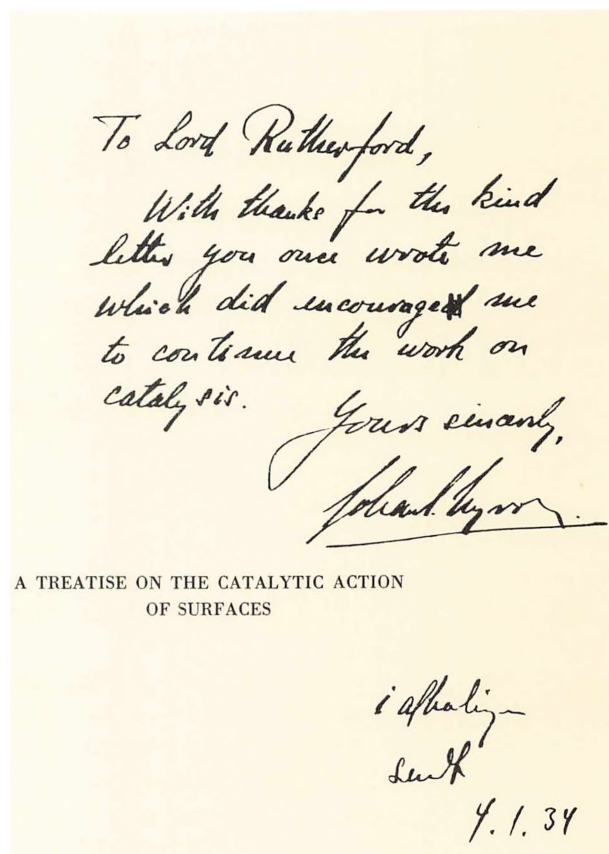 To Lord Rutherford,
With thanks for the kind
letter you once wrote me
which did encourage me
to continue the work on
catalysis.
Yours sincerely,
A TREATISE ON THE CATALYTIC ACTION
OF SURFACES
4.1.34